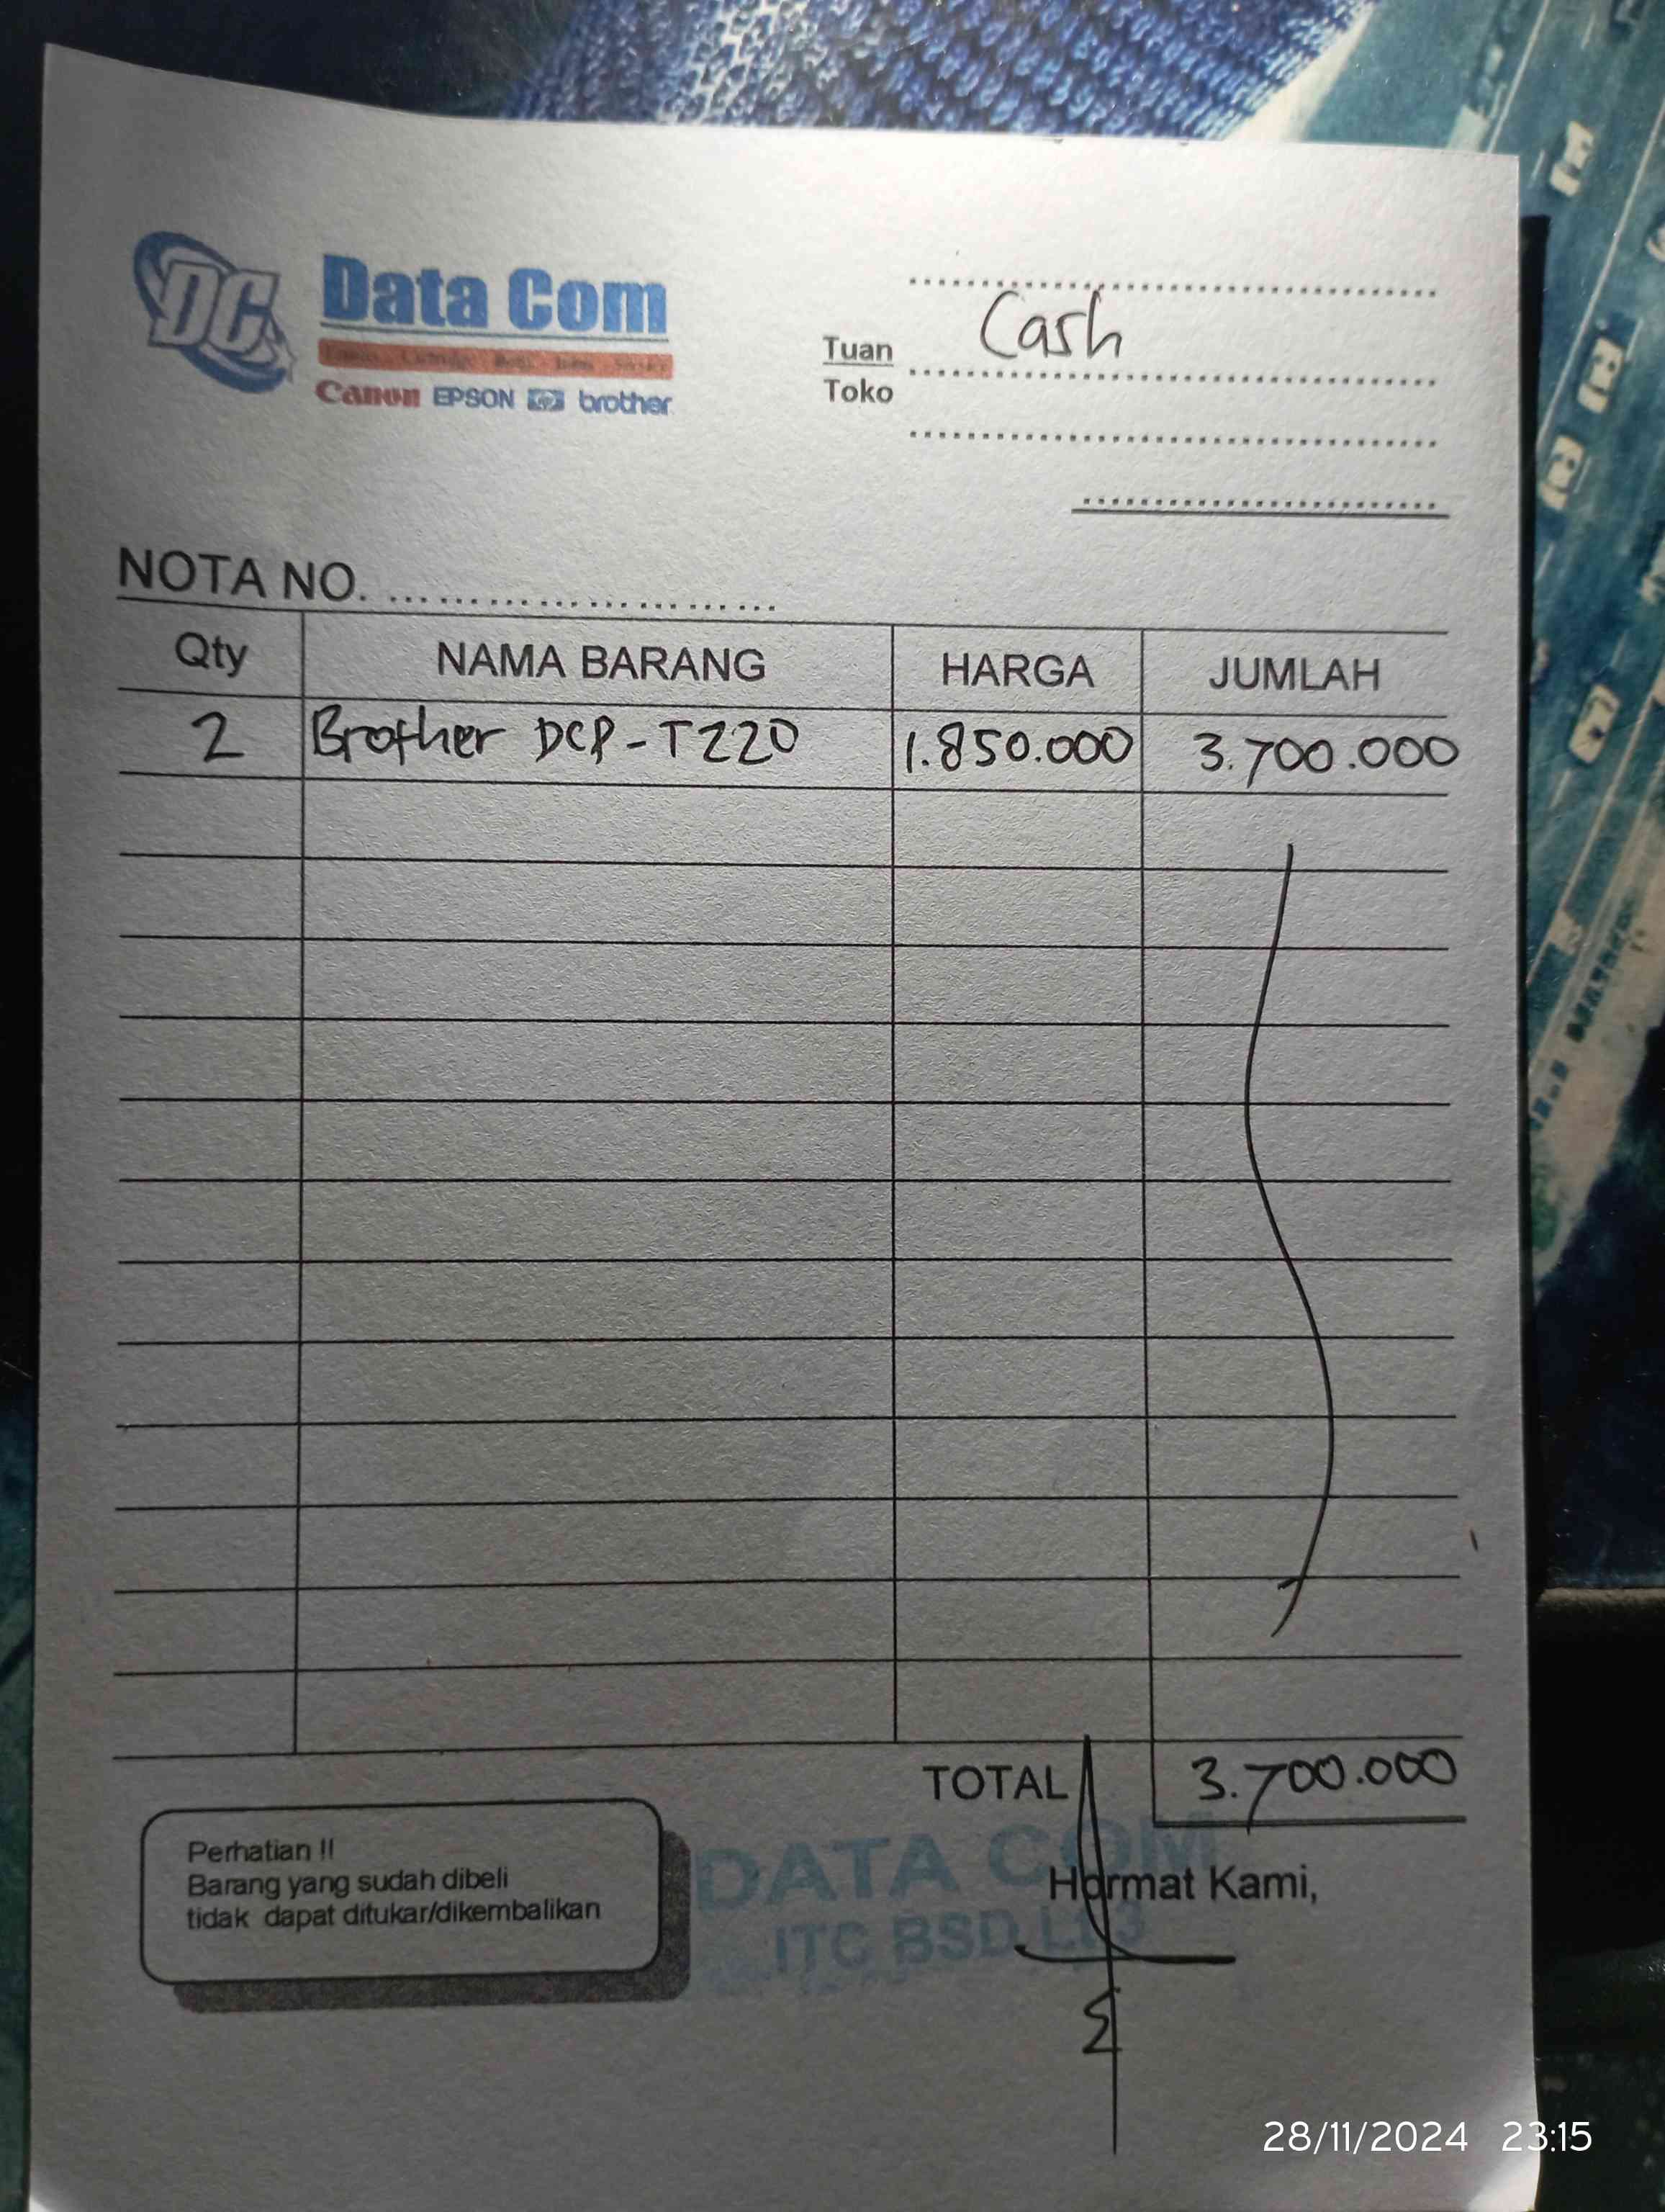 DC
Data Com
Canon EPSON hp brother
Cash
Tuan
Toko
NOTA NO. ........................
Qty NAMA BARANG HARGA JUMLAH
2 Brother DCP-T220 1.850.000 3.700.000
TOTAL 3.700.000
Perhatian !!
Barang yang sudah dibeli
tidak dapat ditukar/dikembalikan
DATA COM
ITC BSD Lt.3
Hormat Kami,
28/11/2024 23:15